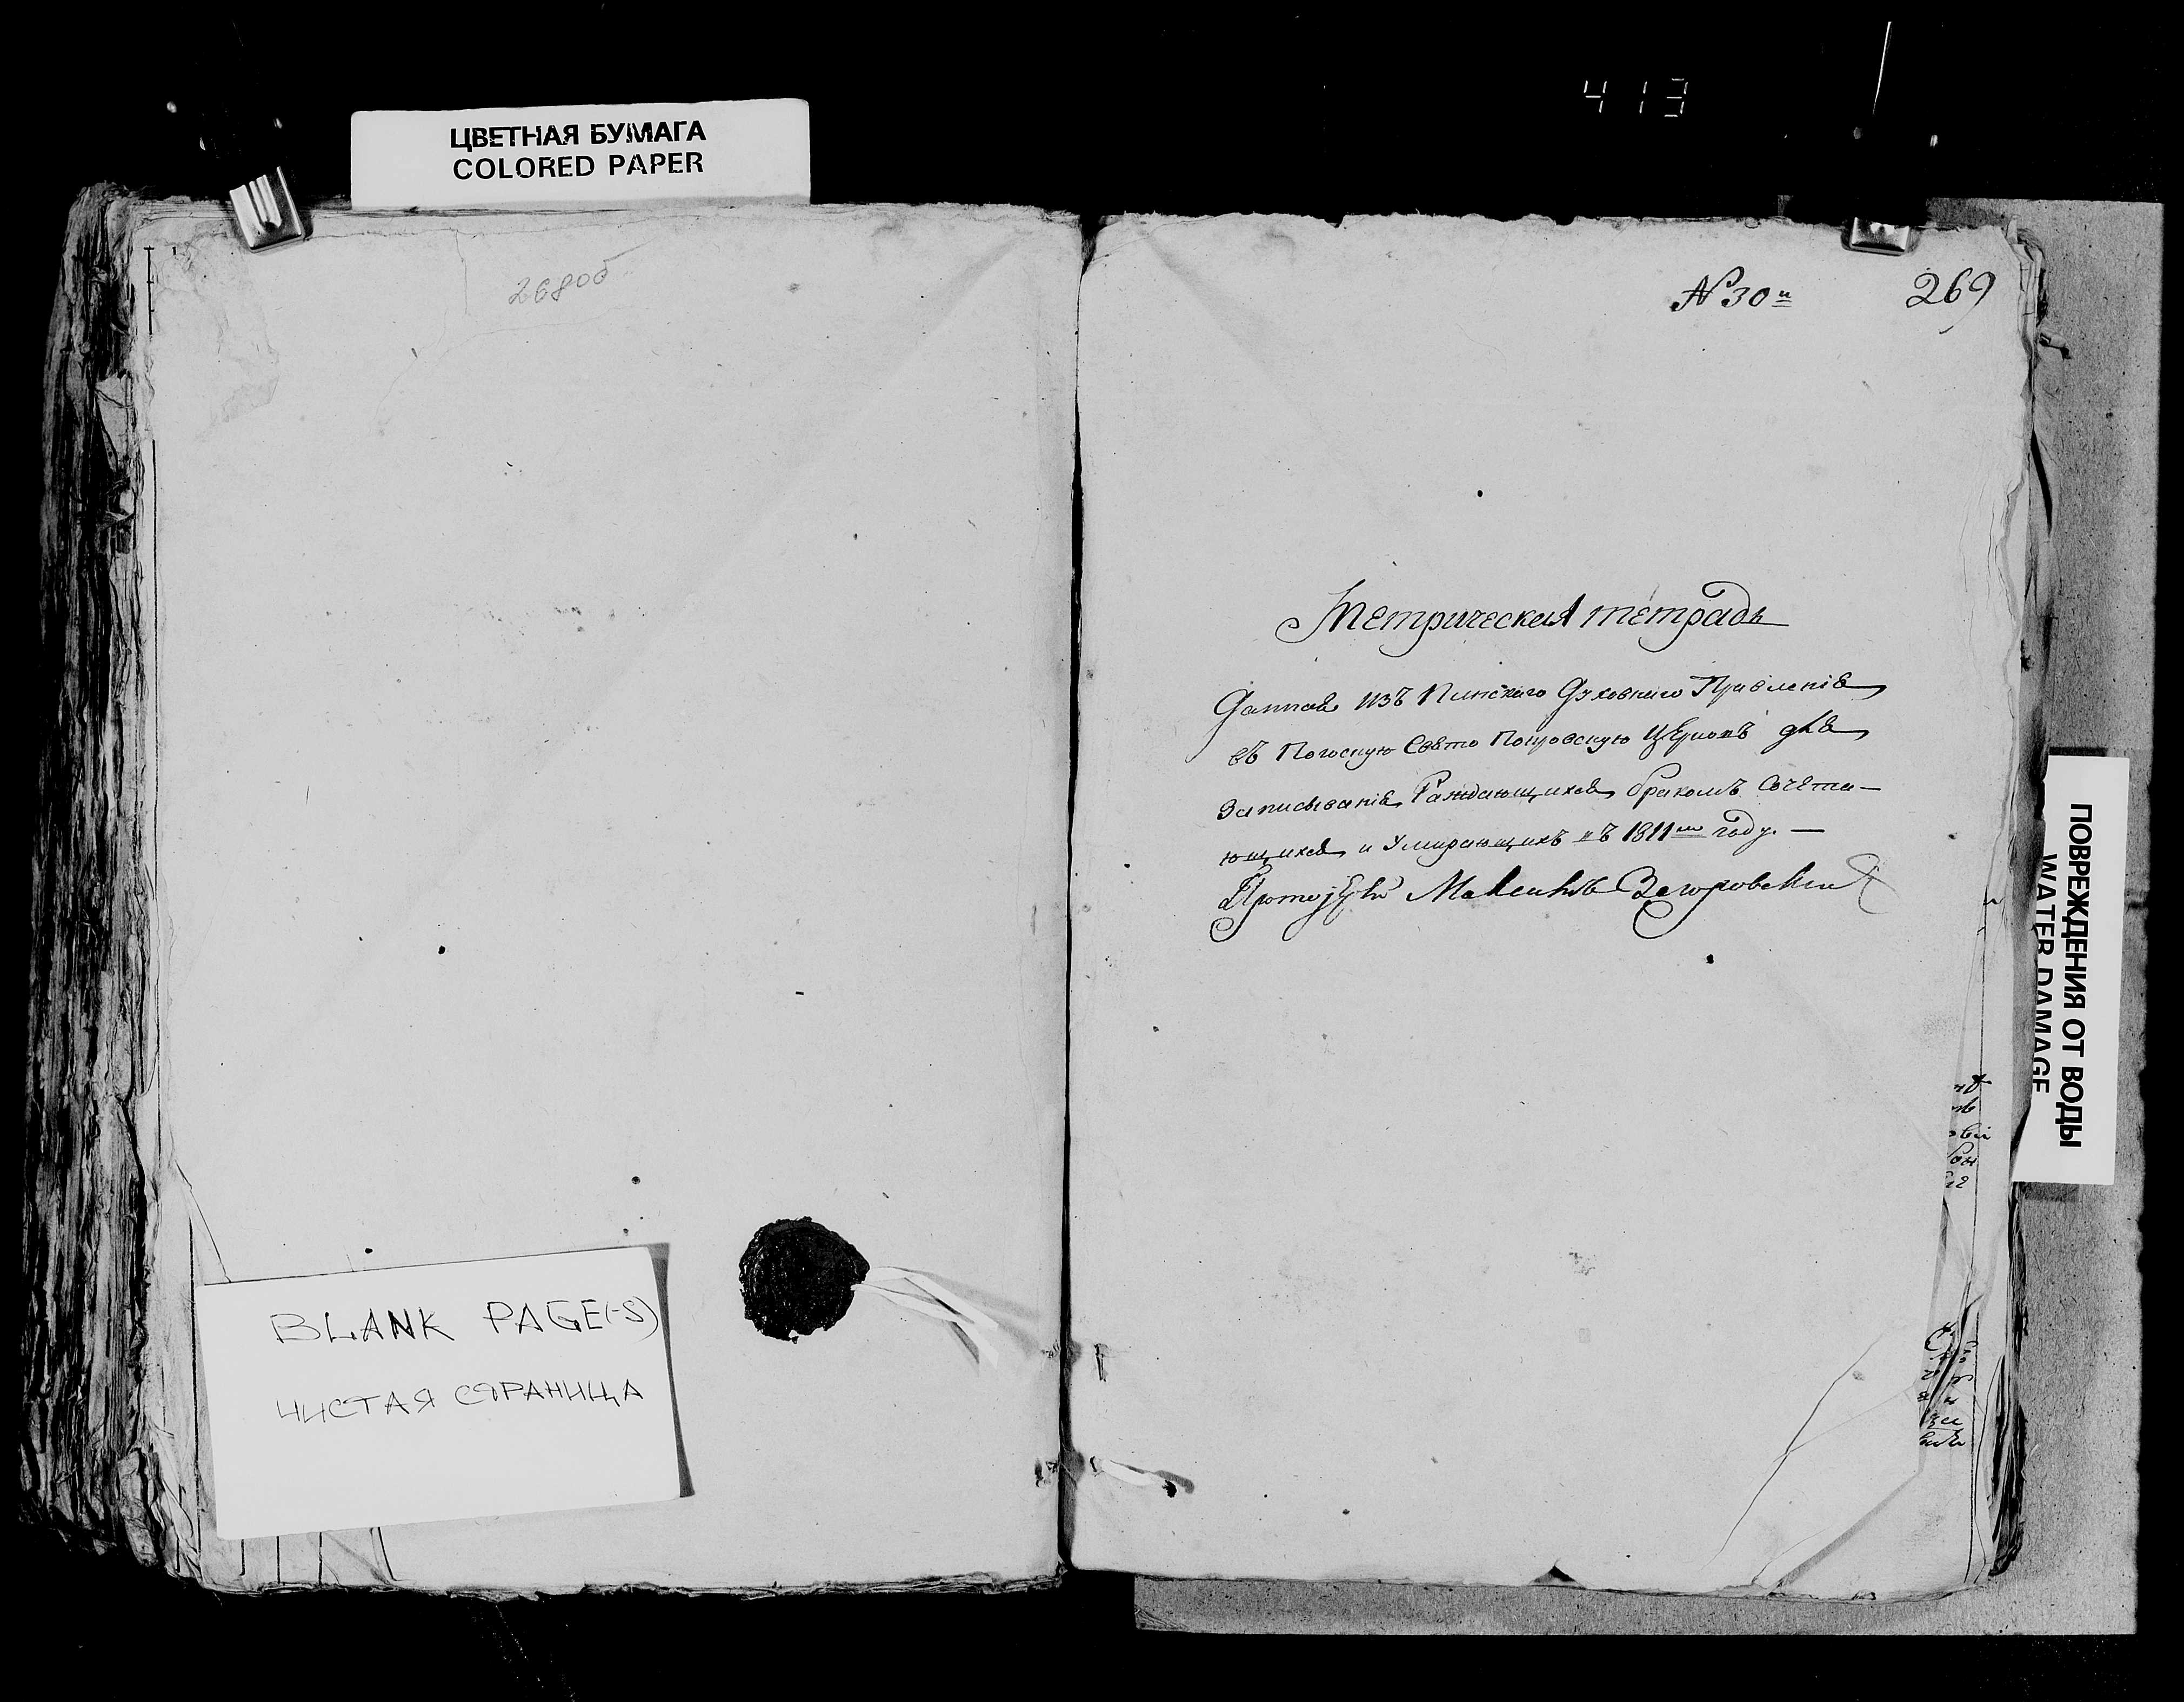 413
ЦВЕТНАЯ БУМАГА
COLORED PAPER
268об
№ 30й
269
Метрическая тетрадь
Данная изъ Пинскаго Духовнаго Правленія
въ Погоскую Свято Покровскую Церковь для
Записыванія Раждающихся, бракомъ Сочета-
ющихся, и Умирающихъ въ 1811м году. —
Максимъ
BLANK PAGE(-S)
ЧИСТАЯ СТРАНИЦА
ПОВРЕЖДЕНИЯ ОТ ВОДЫ
WATER DAMAGE